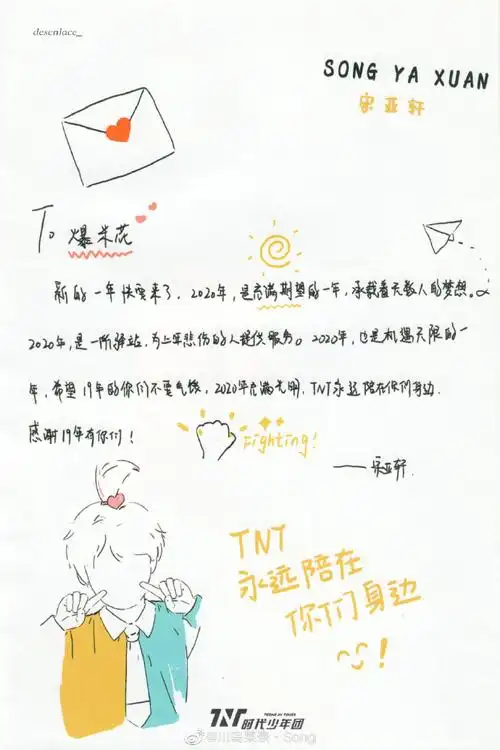 desenlace_
SONG YA XUAN
宋亚轩
To 爆米花
新的一年快要来了，2020年，是充满期望的一年，承载着无数人的梦想。
2020年，是一所驿站，为上年悲伤的人提供服务。2020年，也是机遇无限的一
年，希望19年的你们不要气馁，2020年充满光明，TNT永远陪在你们身边.
感谢19年有你们！
Fighting!
——宋亚轩
TNT
永远陪在
你们身边
!
TNT时代少年团
TEENS IN TIMES